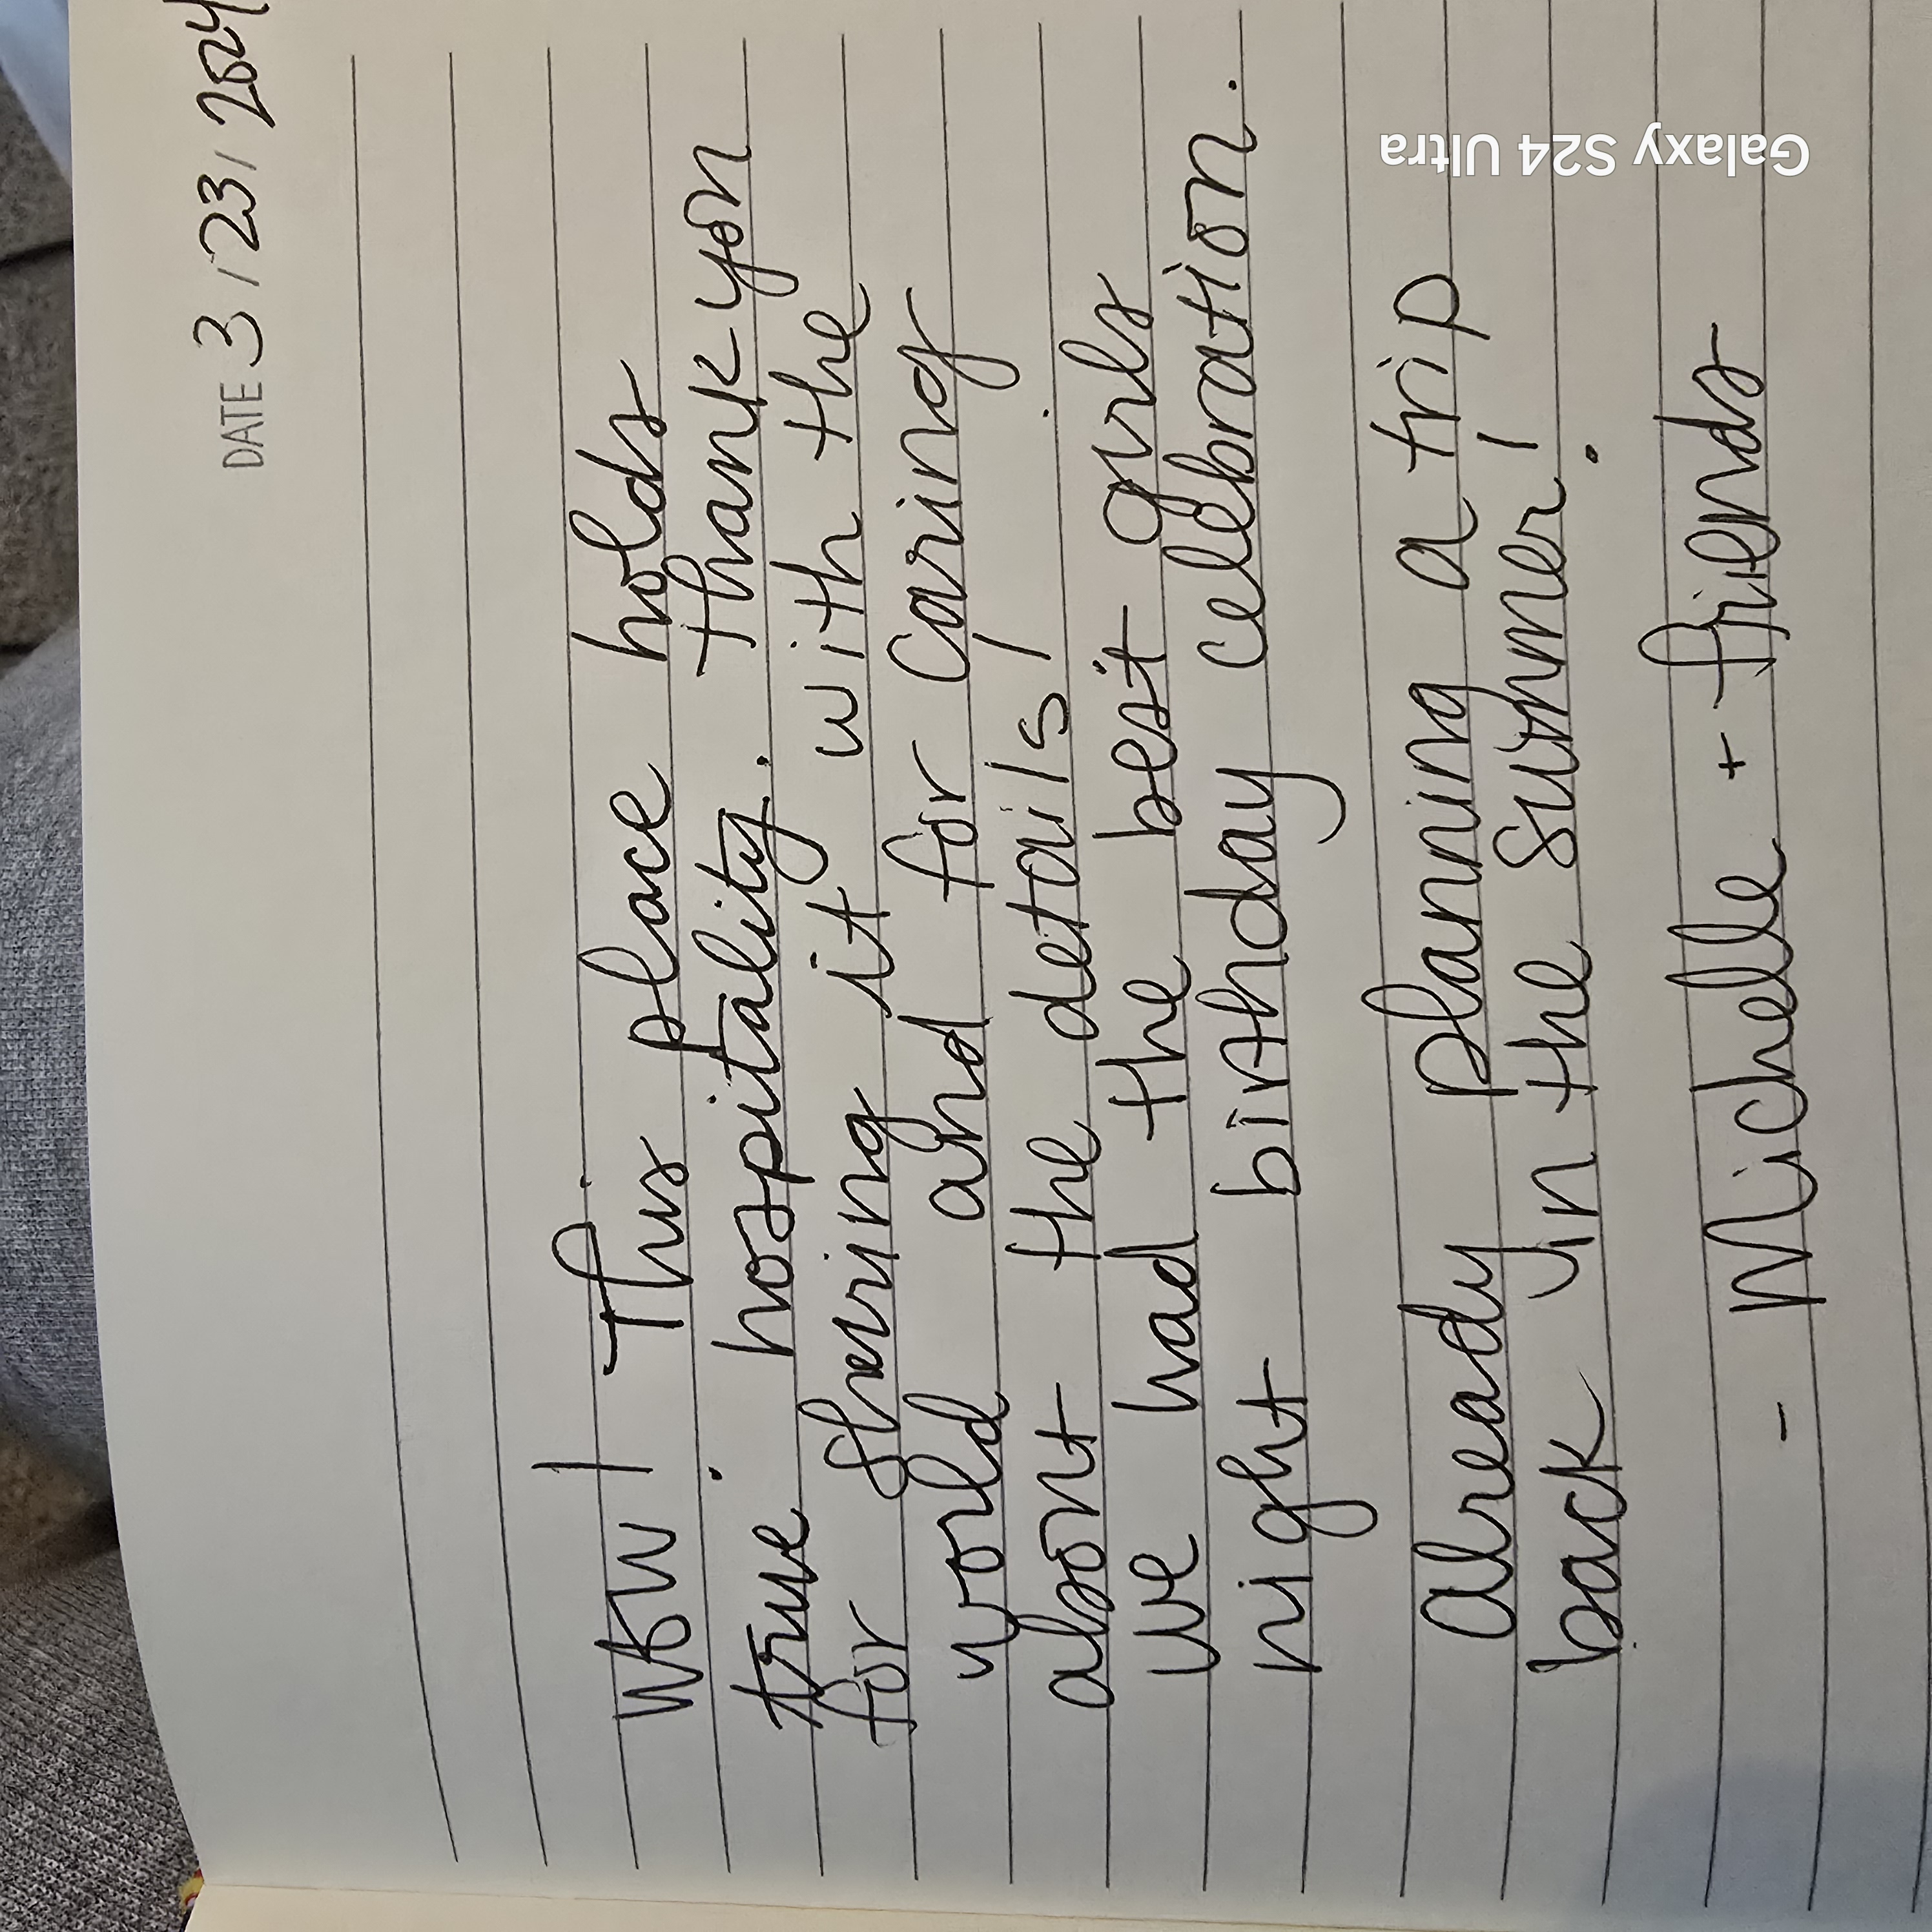 DATE 3/23/2024
WOW! This place holds
true hospitality. Thank you
for shering it with the
world and for caring
about the details!
We had the best girls
night birthday celebration.
Already planning a trip
back in the summer!
- Michelle + friends
Galaxy S24 Ultra